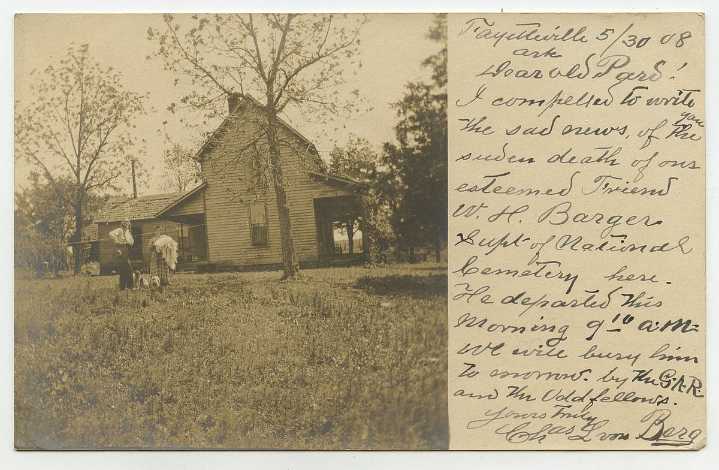 Fayetteville 5/30 08
ark
Dear old Pard!
I compelled to write
you
the sad news, of the
suden death of our
esteemed Friend
W. H. Barger
Supt of National
Cemetery here.
He departed this
Morning 9 10 a.m.
We will bury him
to morrow. by the G.A.R.
and the Oddfellows.
Yours truly
Chas Lvon Berg